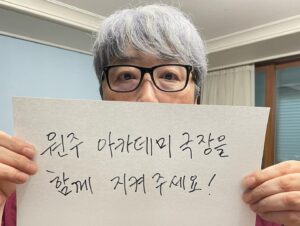 원주 아카데미 극장을
함께 지켜 주세요!